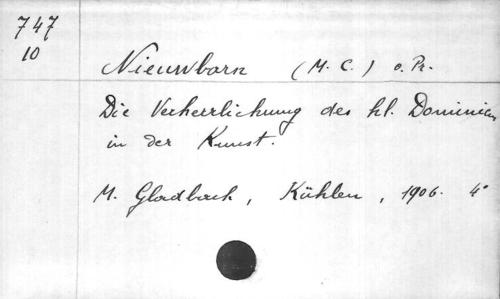 747
10
Nieuwbarn (M. C.) o. Pr.
Die Verherrlichung des hl. Dominicus
in der Kunst.
M. Gladbach, Kühlen, 1906. 4°